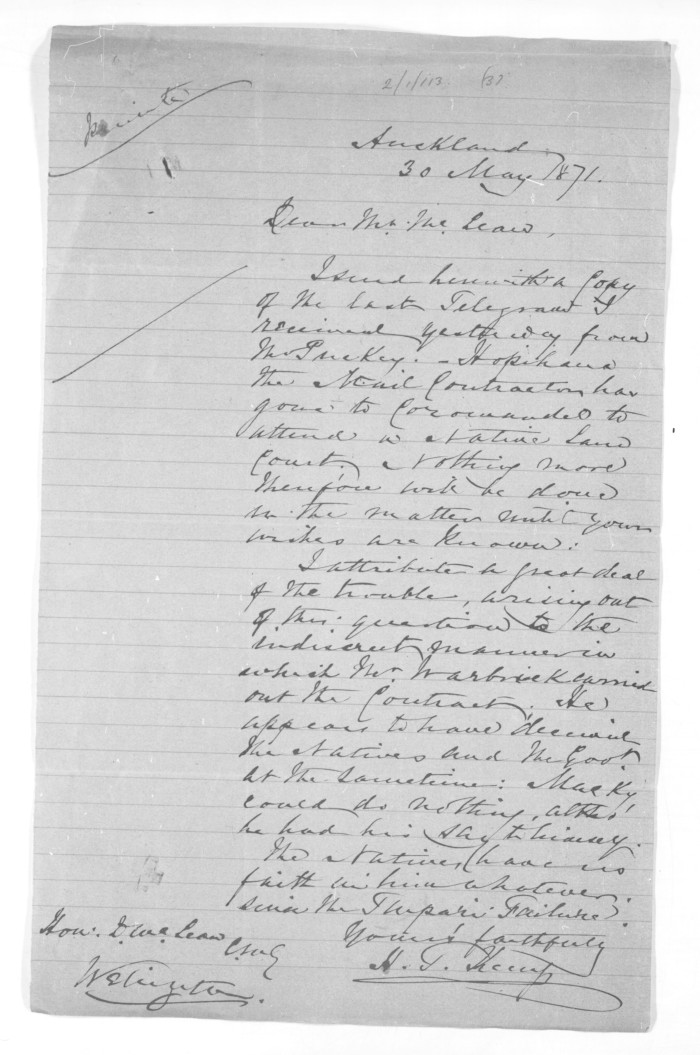 2/1/113. (3)
Private
Auckland
30 May 1871.
Dear Mr. McLean,
I send herewith a Copy
of the last Telegram I
received yesterday from
Mr Puckey. – Hopihana
the Mail Contractor has
gone to Coromandel to
attend a Native Land
Court. Nothing more
therefore will be done
in the matter until your
wishes are Known:
I attribute a great deal
of the trouble, arising out
of this question to the
indiscreet manner in
which Mr. Warbrick carried
out the Contract. He
appears to have deceived
the Natives and the Govt.
at the same time: Macky
could do nothing, altho'
he had his say to himself.
The Natives, have no
faith in him whatever.
since the Tupari Failure.
Yours faithfully
H. T. Kemp
Hon. D. McLean
C.M.G
Wellington.